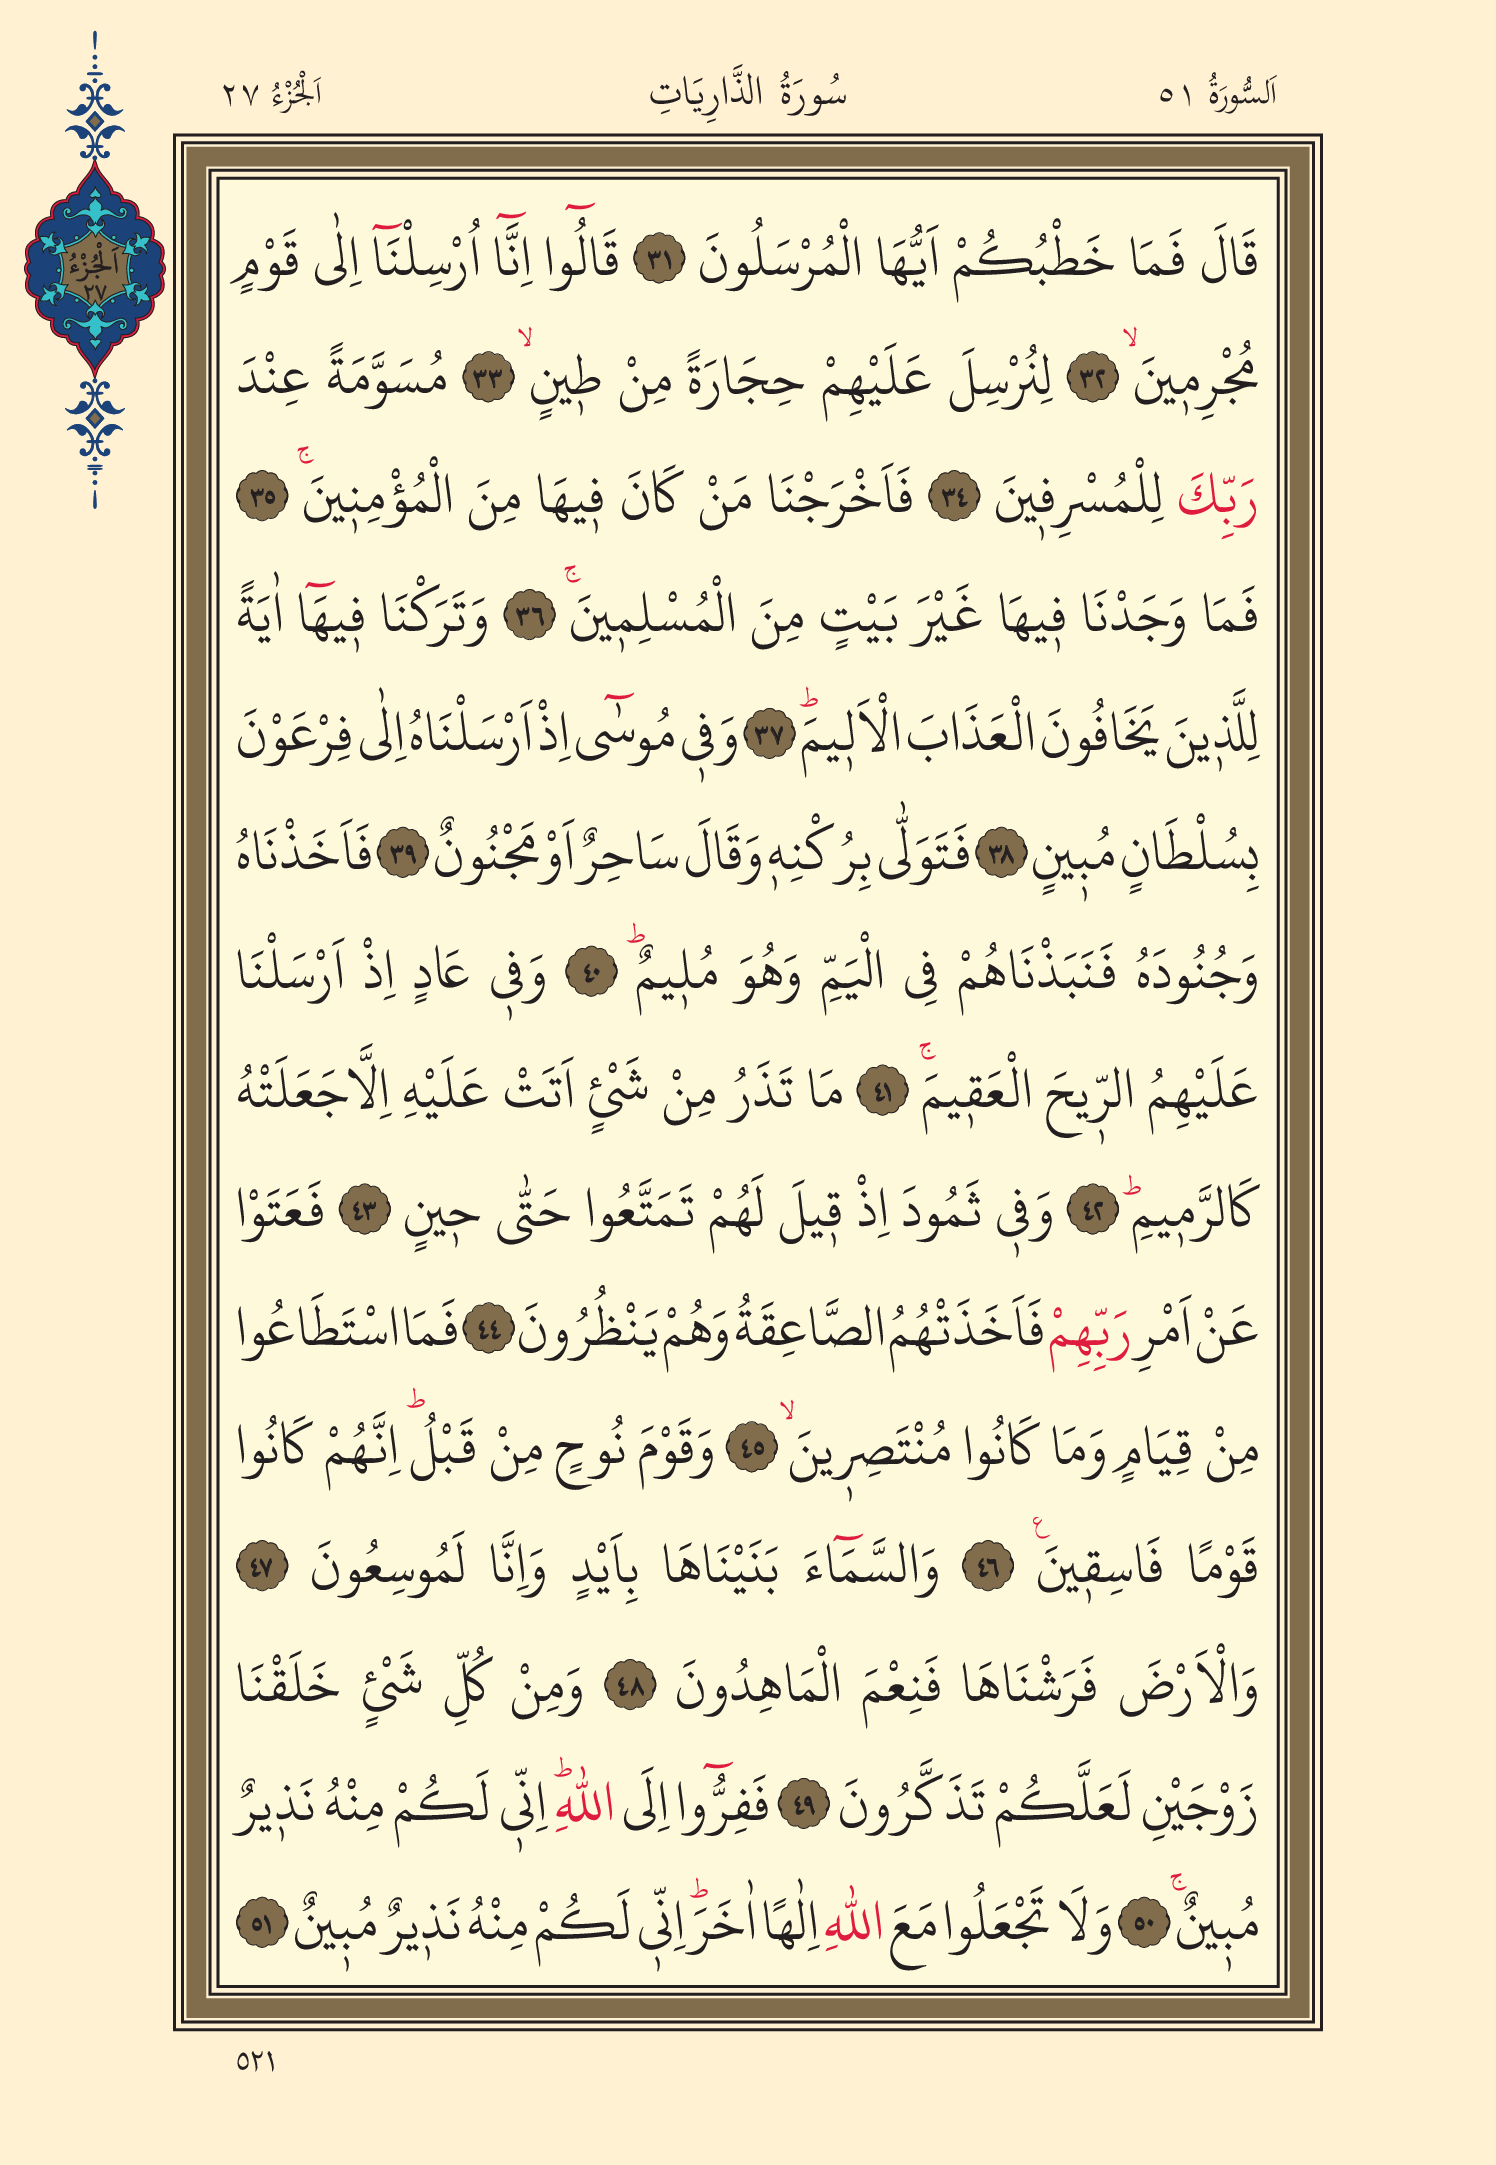 اَلسُّورَةُ ٥١
سُورَةُ الذَّارِيَاتِ
اَلْجُزْءُ ٢٧
اَلْجُزْءُ
٢٧
قَالَ فَمَا خَطْبُكُمْ اَيُّهَا الْمُرْسَلُونَ ﴿٣١﴾ قَالُٓوا اِنَّٓا اُرْسِلْنَٓا اِلٰى قَوْمٍ
مُجْرِم۪ينَۙ ﴿٣٢﴾ لِنُرْسِلَ عَلَيْهِمْ حِجَارَةً مِنْ ط۪ينٍۙ ﴿٣٣﴾ مُسَوَّمَةً عِنْدَ
رَبِّكَ لِلْمُسْرِف۪ينَ ﴿٣٤﴾ فَاَخْرَجْنَا مَنْ كَانَ ف۪يهَا مِنَ الْمُؤْمِن۪ينَۚ ﴿٣٥﴾
فَمَا وَجَدْنَا ف۪يهَا غَيْرَ بَيْتٍ مِنَ الْمُسْلِم۪ينَۚ ﴿٣٦﴾ وَتَرَكْنَا ف۪يهَٓا اٰيَةً
لِلَّذ۪ينَ يَخَافُونَ الْعَذَابَ الْاَل۪يمَۜ ﴿٣٧﴾ وَف۪ي مُوسٰٓى اِذْ اَرْسَلْنَاهُ اِلٰى فِرْعَوْنَ
بِسُلْطَانٍ مُب۪ينٍ ﴿٣٨﴾ فَتَوَلّٰى بِرُكْنِه۪ وَقَالَ سَاحِرٌ اَوْ مَجْنُونٌ ﴿٣٩﴾ فَاَخَذْنَاهُ
وَجُنُودَهُ فَنَبَذْنَاهُمْ فِي الْيَمِّ وَهُوَ مُل۪يمٌۜ ﴿٤٠﴾ وَف۪ي عَادٍ اِذْ اَرْسَلْنَا
عَلَيْهِمُ الرّ۪يحَ الْعَق۪يمَۚ ﴿٤١﴾ مَا تَذَرُ مِنْ شَيْءٍ اَتَتْ عَلَيْهِ اِلَّا جَعَلَتْهُ
كَالرَّم۪يمِۜ ﴿٤٢﴾ وَف۪ي ثَمُودَ اِذْ ق۪يلَ لَهُمْ تَمَتَّعُوا حَتّٰى ح۪ينٍ ﴿٤٣﴾ فَعَتَوْا
عَنْ اَمْرِ رَبِّهِمْ فَاَخَذَتْهُمُ الصَّاعِقَةُ وَهُمْ يَنْظُرُونَ ﴿٤٤﴾ فَمَا اسْتَطَاعُوا
مِنْ قِيَامٍ وَمَا كَانُوا مُنْتَصِر۪ينَۙ ﴿٤٥﴾ وَقَوْمَ نُوحٍ مِنْ قَبْلُۜ اِنَّهُمْ كَانُوا
قَوْمًا فَاسِق۪ينَ ع ﴿٤٦﴾ وَالسَّمَٓاءَ بَنَيْنَاهَا بِاَيْدٍ وَاِنَّا لَمُوسِعُونَ ﴿٤٧﴾
وَالْاَرْضَ فَرَشْنَاهَا فَنِعْمَ الْمَاهِدُونَ ﴿٤٨﴾ وَمِنْ كُلِّ شَيْءٍ خَلَقْنَا
زَوْجَيْنِ لَعَلَّكُمْ تَذَكَّرُونَ ﴿٤٩﴾ فَفِرُّٓوا اِلَى اللّٰهِۜ اِنّ۪ي لَكُمْ مِنْهُ نَذ۪يرٌ
مُب۪ينٌۚ ﴿٥٠﴾ وَلَا تَجْعَلُوا مَعَ اللّٰهِ اِلٰهًا اٰخَرَۜ اِنّ۪ي لَكُمْ مِنْهُ نَذ۪يرٌ مُب۪ينٌ ﴿٥١﴾
٥٢١